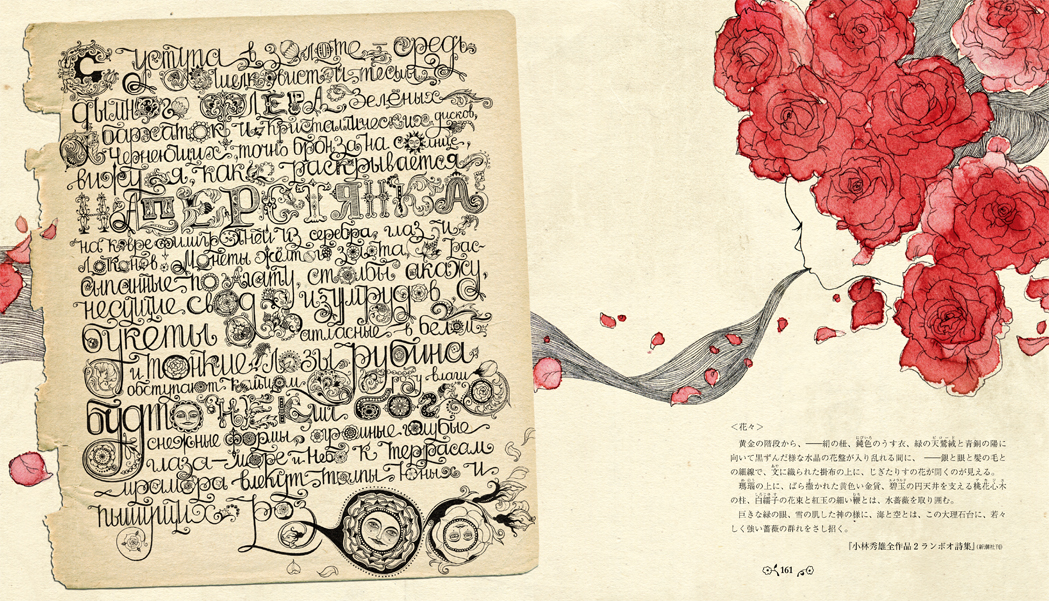 С уступа в золоте — средь
шелковистой тесьмы,
дымного ФЛЕРА, зелёных
бархаток и кристаллических дисков,
чернеющих, точно бронза на солнце,
вижу я, как раскрывается
НАПЕРСТЯНКА
на ковре филиграней из серебра, глаз и
локонов. Монеты жёлтого золота, рас-
сыпанные по агату, столбы акажу,
несущие свод изумрудов,
букеты атласные — в белом,
и тонкие лозы рубина
обступают кругом розу влаги.
Будто некий бог
снежные формы, огромные голубые
глаза — море и небо к террасам
мрамора влекут толпы юных и
пышущих роз
＜花々＞
黄金の階段から、——絹の紐、鈍色のうす衣、緑の天鵞絨と青銅の陽に
向いて黒ずんだ様な水晶の花盤が入り乱れる間に、——銀と眼と髪の毛と
の細線で、文に織られた掛布の上に、じぎたりすの花が開くのが見える。
瑪瑙の上に、ばら撒かれた黄色い金貨、碧玉の円天井を支える桃花心木
の柱、白繻子の花束と紅玉の細い鞭とは、水薔薇を取り囲む。
巨きな緑の眼、雪の肌した神の様に、海と空とは、この大理石台に、若々
しく強い薔薇の群れをさし招く。
『小林秀雄全作品２ランボオ詩集』(新潮社刊)
161